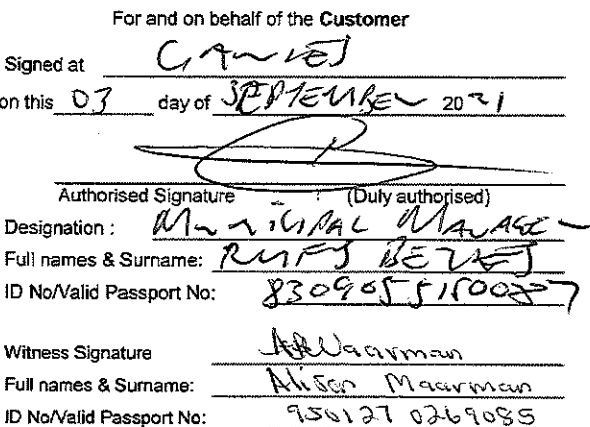 For and on behalf of the Customer
Signed at GANYES
on this 03 day of SEPTEMBER 2021
Authorised Signature (Duly authorised)
Designation : MUNICIPAL MANAGER
Full names & Surname: RUFUS
ID No/Valid Passport No:
Witness Signature AAWaarman
Full names & Surname: Alison Maarman
ID No/Valid Passport No: 950127 0269085